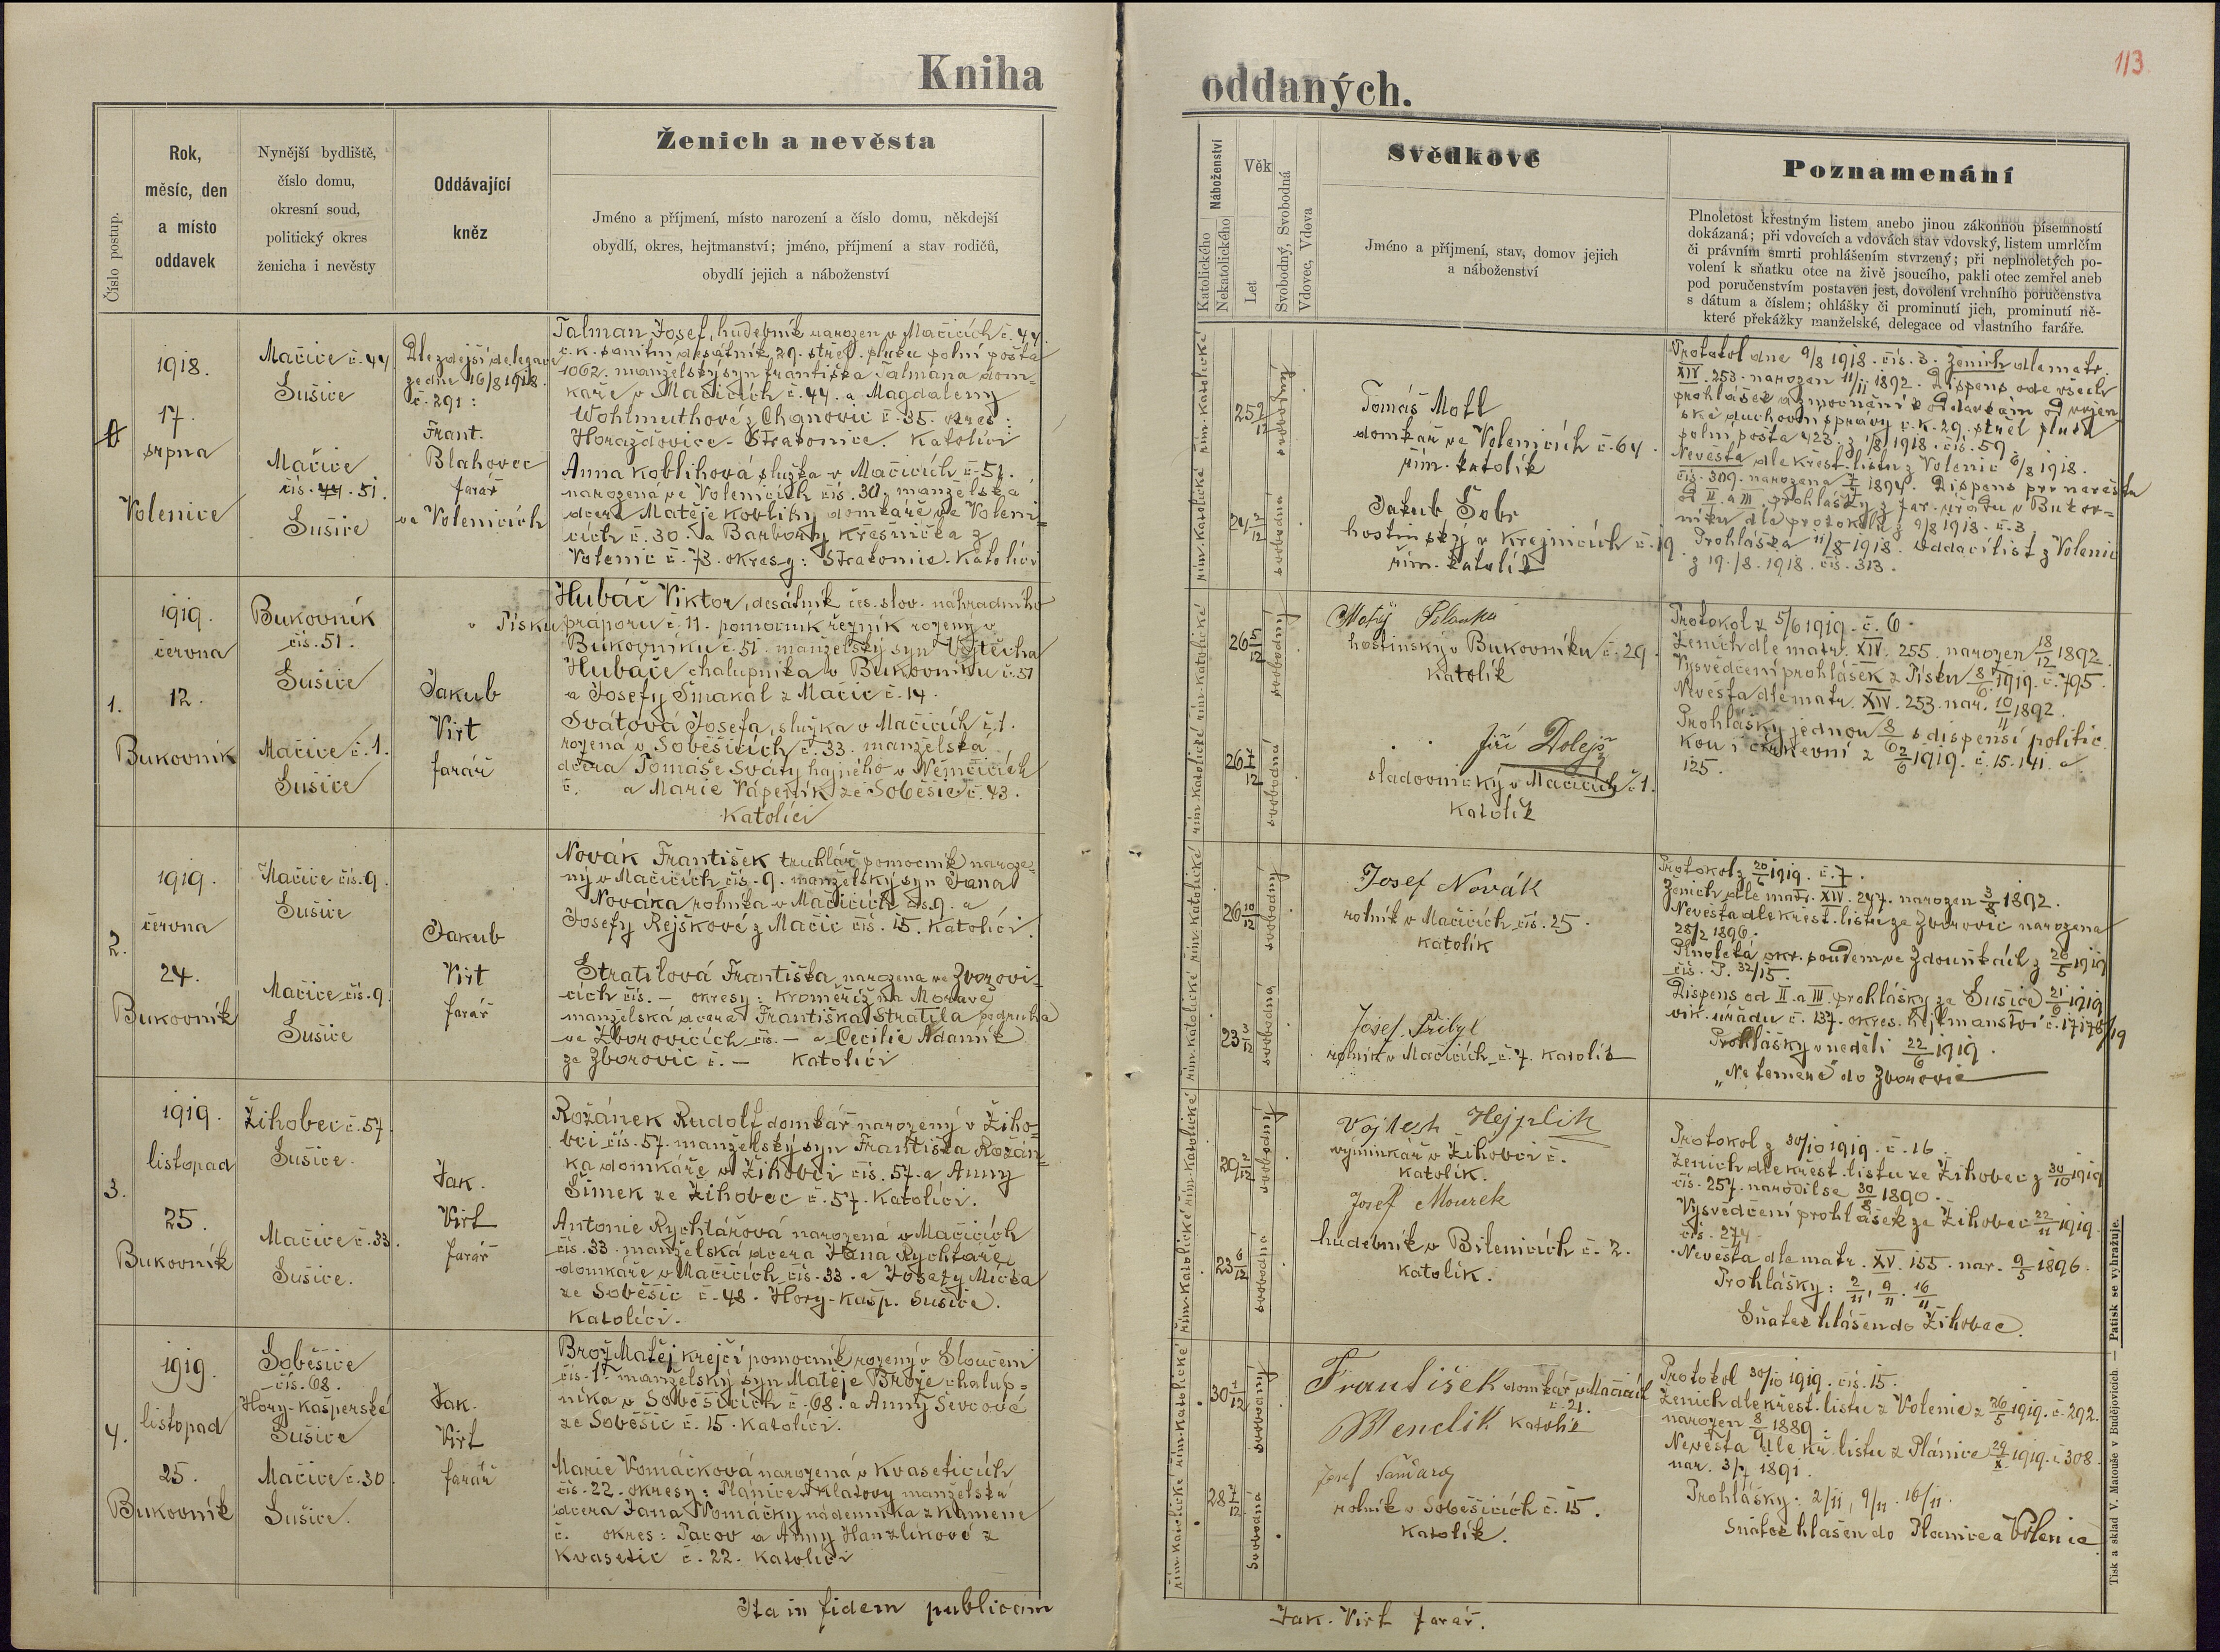 113
Kniha oddaných.
Číslo postup.
Rok,
měsíc, den
a místo
oddavek
Nynější bydliště,
číslo domu,
okresní soud,
politický okres
ženicha i nevěsty
Oddávající
kněz
Ženich a nevěsta
Jméno a příjmení, místo narození a číslo domu, někdejší
obydlí, okres, hejtmanství; jméno, příjmení a stav rodičů,
obydlí jejich a náboženství
Náboženství
Katolického
Nekatolického
Věk
Let
Svobodný, Svobodná
Vdovec, Vdova
Svědkové
Jméno a příjmení, stav, domov jejich
a náboženství
Poznamenání
Plnoletost křestným listem anebo jinou zákonnou písemností
dokázaná; při vdovcích a vdovách stav vdovský, listem umrlčím
či právním smrti prohlášením stvrzený; při neplnoletých po-
volení k sňatku otce na živě jsoucího, pakli otec zemřel aneb
pod poručenstvím postaven jest, dovolení vrchního poručenstva
s dátum a číslem; ohlášky či prominutí jich, prominutí ně-
které překážky manželské, delegace od vlastního faráře.
1918.
17.
srpna
Volenice
Mačice č. 44
Sušice
Mačice
čís. 44. 51.
Sušice
Dle zdejší delegace
ze dne 16/8 1918.
č. 291:
Frant.
Blahovec
farář
ve Volenicích
Talman Josef, hudebník narozen v Mačicích č. 44.
č. k. sanitní desátník 29. střel. pluku polní pošta
1062. manželský syn Františka Talmána dom=
káře v Mačicích č. 44. a Magdaleny
Wohlmuthové z Chanovic č. 35. okres:
Horažďovice - Strakonice. Katolíci
Anna Koblihová služka v Mačicích č. 51.
narozená ve Volenicích čís. 30, manželská
dcera Matěje Koblihy domkáře ve Voleni=
cích č. 30. a Barbory Křesnička z
Volenic č. 73. okresy: Strakonice. Katolíci
řím. katolické
řím. katolické
25 9/12
svobodný
svobodná
Tomáš Motl
domkář ve Volenicích č. 64.
řím. katolík
Jakub Šobr
hostinský v Krejnicích č. 19.
řím. katolík
Protokol dne 9/8 1918. čís. 3. Ženich dle matr.
XIV. 253. narozen 11/11 1892. Dispens ode všech
prohlášek a zmocnění k oddavkám od vojen
ské duchovní správy c. k. 29. střel. pluku
polní pošta 423. z 1/8 1918. čís. 59.
Nevěsta dle křest. listu z Volenic 6/8 1918.
čís. 309. narozena 1894. Dispens pro nevěstu
od II. a III. prohlášky z far. úřadu v Bukov=
níku dle protokolu z 9/8 1918. č. 3.
Prohláška 11/8 1918. Oddací list z Volenic
z 19./8. 1918. čís. 313.
1.
1919.
června
12.
Bukovník
Bukovník
čís. 51.
Sušice
Mačice č. 1.
Sušice
Jakub
Virt
farář
Hubáč Viktor, desátník čes. slov. náhradního
v Písku práporu č. 11. pomocník řezník rozený v
Bukovníku č. 51. manželský syn Vojtěcha
Hubáče chalupníka v Bukovníku č. 51
a Josefy Smakal z Mačic č. 14.
Svátová Josefa, služka v Mačicích č. 1.
rozená v Soběšicích č. 33. manželská
dcera Tomáše Sváty hajného v Němčicích
č. a Marie Vápeník ze Soběšic č. 43.
Katolíci
řím. katolické
řím. katolické
svobodný
svobodná
Matěj
hostinský v Bukovníku č. 29.
Katolík
Jiří Dolejš
sladovnický v Mačicích č. 1.
Katolík
Protokol z 5/6 1919. č. 6.
Ženich dle matr. XIV. 255. narozen 18/12 1892.
Vysvědčení prohlášek z Písku 8/6 1919. č. 795.
Nevěsta dle matr. XIV. 253. nar. 10/11 1892.
Prohlášky jednou 8/6 s dispensí politic
kou i církevní z 2/6 1919. č. 15.141. a
125.
2.
1919.
června
24.
Bukovník
Mačice čís. 9.
Sušice
Mačice čís. 9.
Sušice
Jakub
Virt
farář
Novák František truhlář pomocník naroze=
ný v Mačicích čís. 9. manželský syn Jana
Nováka rolníka v Mačicích čís. 9. a
Josefy Rejškové z Mačic čís. 15. Katolíci.
Stratilová Františka, narozena ve Zborovi-
cích čís. — okresy: Kroměříž na Moravě
manželská dcera Františka Stratila podruha
ve Zborovicích čís. — a Cecilie Adamík
ze Zborovic č. — Katolíci
řím. katolické
řím. katolické
26 10/12
23 3/12
svobodný
svobodná
Josef Novák
rolník v Mačicích čís. 25.
Katolík
Josef Přibyl
rolník v Mačicích č. 7. Katolík
Protokol z 20/6 1919. č. 7.
Ženich dle matr. XIV. 247. narozen 3/8 1892.
Nevěsta dle křest. listu ze Zborovic narozena
28/2 1896.
Plnoletá okr. soudem ve Zdounkách z 26/5 1919
čís. P. 32/15.
Dispens od II. a III. prohlášky ze Sušice 21/6 1919
vik. úřadu č. 137. okres. hejtmanství č. 17178/19
Prohlášky v neděli 22/6 1919.
„Ne temere" do Zborovic
3.
1919.
listopad
25.
Bukovník
Žihobec č. 57.
Sušice.
Mačice č. 33.
Sušice.
Jak.
Virt
farář
Rožánek Rudolf domkář narozený v Žiho-
bci čís. 57. manželský syn Františka Rožán-
ka domkáře v Žihobci čís. 57. a Anny
Šimek ze Žihobec č. 57. Katolíci.
Antonie Rychtářová narozená v Mačicích
čís. 33. manželská dcera Jana Rychtáře
domkáře v Mačicích čís. 33. a Josefy Mička
ze Soběšic č. 48. Hory-Kašp. Sušice.
Katolíci.
řím. katolické
řím. katolické
23 6/12
svobodný
svobodná
Vojtěch Hejplík
výminkář v Žihobci č.
Katolík.
Josef Mourek
hudebník v Bílenicích č. 2.
Katolík.
Protokol z 30/10 1919. č. 16.
Ženich dle křest. listu ze Žihobec z 30/10 1919
čís. 257. narodil se 30/8 1890.
Vysvědčení prohlášek ze Žihobec 22/11 1919.
čís. 274.
Nevěsta dle matr. XV. 155. nar. 9/5 1896.
Prohlášky: 2/11, 9/11. 16/11
Sňatek hlášen do Žihobec.
4.
1919.
listopad
25.
Bukovník
Soběšice
čís. 68.
Hory-Kašperské
Sušice
Mačice č. 30.
Sušice.
Jak.
Virt
farář
Brož Matěj krejčí pomocník rozený v Sloučeni
čís. 1. manželský syn Matěje Brože chalup=
níka v Soběšicích č. 68. a Anny Ševcové
ze Soběšic č. 15. Katolíci.
Marie Vomáčková narozená v Kvaseticích
čís. 22. okresy: Plánice Klatovy manželská
dcera Jana Vomáčky nádenníka z Kamene
č. okres: Pacov a Anny Hanzlíkové z
Kvasetic č. 22. Katolíci
řím. katolické
řím. katolické
svobodný
svobodná
František domkář v Mačicích
č. 21.
Menclík Katolík
Josef
rolník v Soběšicích č. 15.
Katolík.
Protokol 30/10 1919. čís. 15.
Ženich dle křest. listu z Volenic z 26/5 1919. č. 292.
narozen 8/9 1889.
Nevěsta dle kř. listu z Plánice 29/X. 1919. č. 308.
nar. 3/7 1891.
Prohlášky: 2/11, 9/11. 16/11.
Sňatek hlášen do Plánice a Volenic
Ita in fidem publicam
Jak. Virt farář.
Tisk a sklad V. Matouše v Budějovicích. — Patisk se vyhražuje.